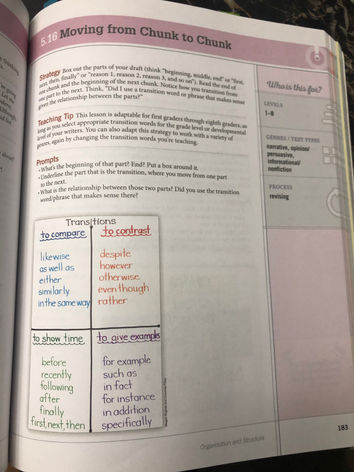 5.16 Moving from Chunk to Chunk
Strategy Box out the parts of your draft (think "beginning, middle, end" or "first,
next, then, finally" or "reason 1, reason 2, reason 3, and so on"). Read the end of
one chunk and the beginning of the next chunk. Notice how you transition from
one part to the next. Think, "Did I use a transition word or phrase that makes sense
given the relationship between the parts?"
Teaching Tip This lesson is adaptable for first graders through eighth graders, as
long as you select appropriate transition words for the grade level or developmental
level of your writers. You can also adapt this strategy to work with a variety of
genres, again by changing the transition words you're teaching.
Prompts
• What's the beginning of that part? End? Put a box around it.
• Underline the part that is the transition, where you move from one part
to the next.
• What is the relationship between those two parts? Did you use the transition
word/phrase that makes sense there?
Who is this for?
LEVELS
1–8
GENRES / TEXT TYPES
narrative, opinion/
persuasive,
informational/
nonfiction
PROCESS
revising
Transitions
to compare
likewise
as well as
either
similarly
in the same way
to contrast
despite
however
otherwise
even though
rather
to show time
before
recently
following
after
finally
first, next, then
to give examples
for example
such as
in fact
for instance
in addition
specifically
Organization and Structure
183